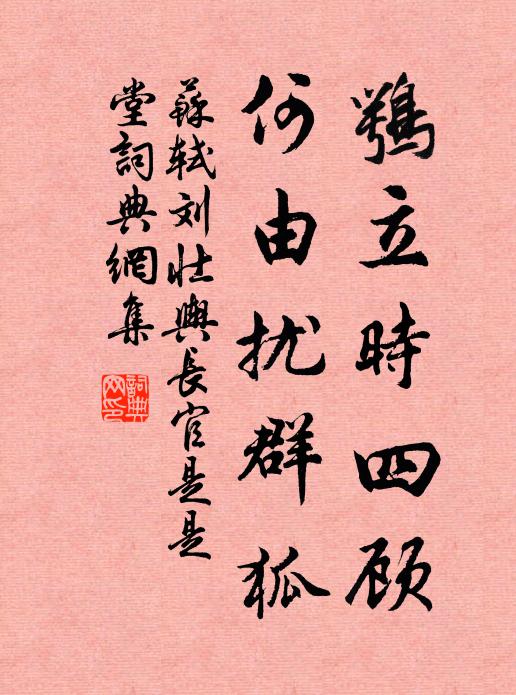 鶚立時四顾
何由扰群狐
蘇軾刘壮輿長官是是
堂詞典網集
詞典
网印